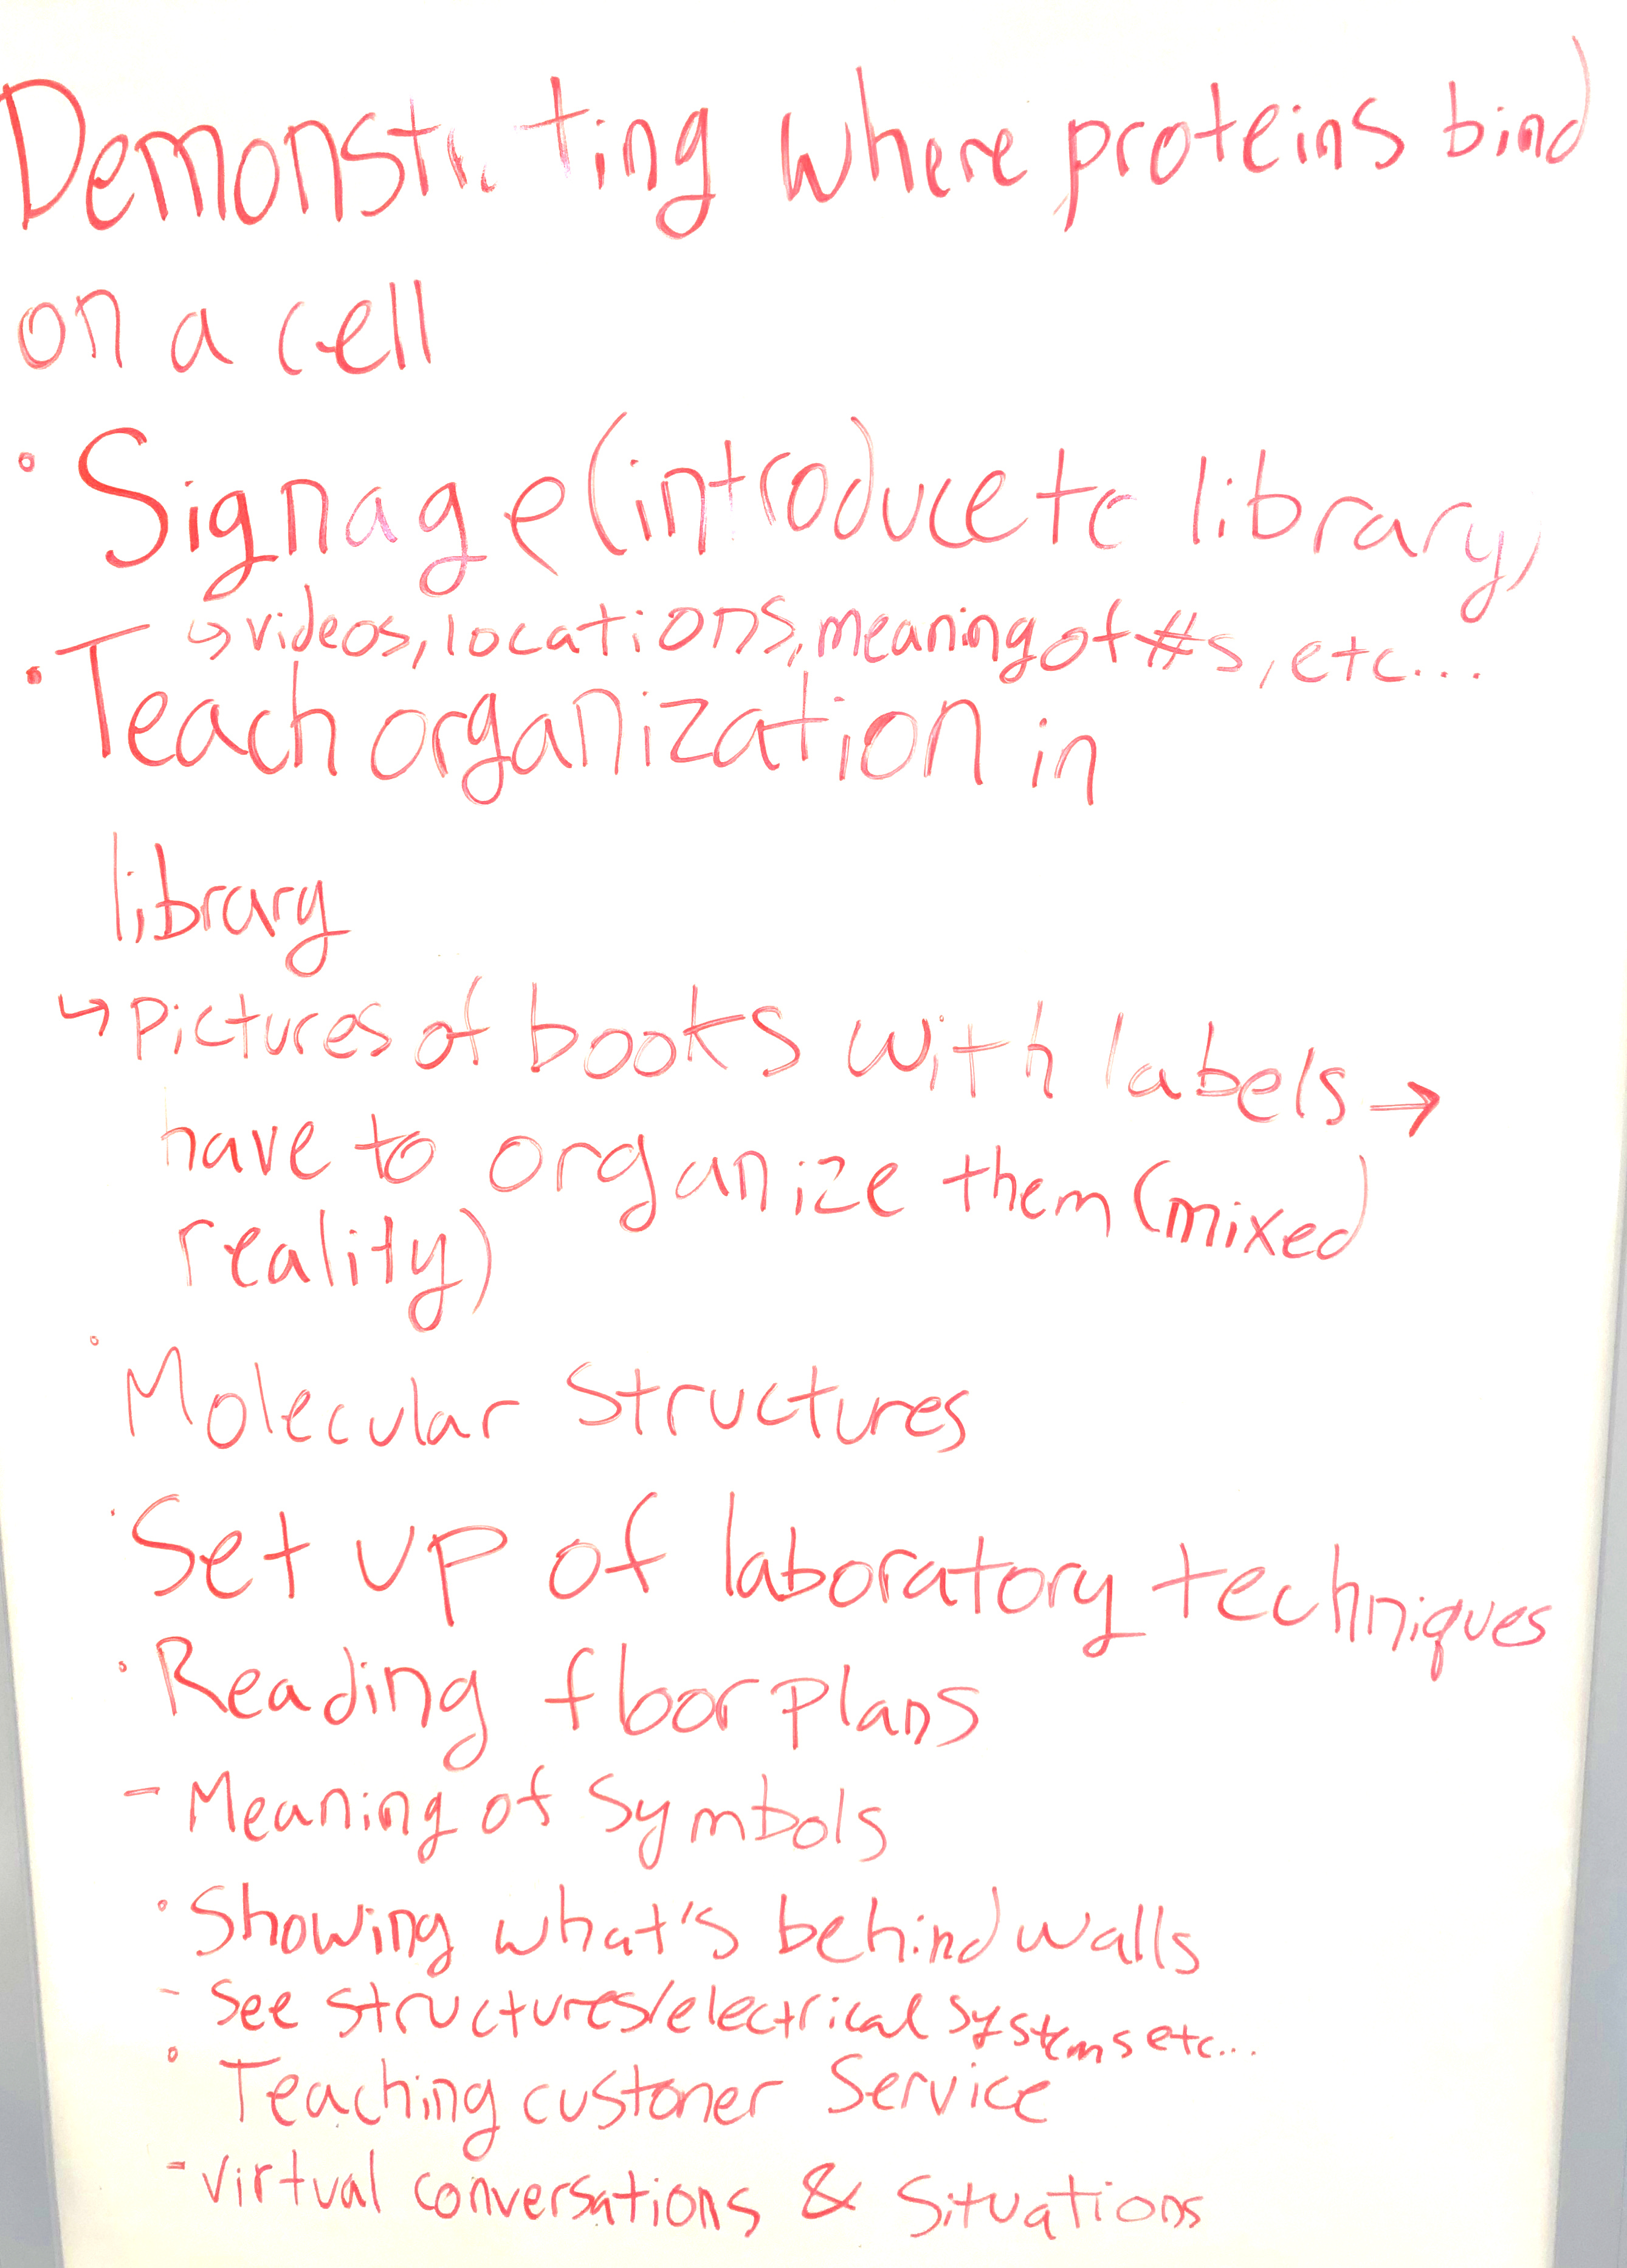 Demonstrating where proteins bind
on a cell
• Signage (introduce to library)
↳ videos, locations, meaning of #s, etc...
• Teach organization in
library
↳ Pictures of books with labels →
have to organize them (mixed
reality)
• Molecular Structures
• Set up of laboratory techniques
• Reading floor plans
- Meaning of Symbols
• Showing what's behind walls
- See structures/electrical systems etc...
• Teaching customer Service
- Virtual conversations & Situations